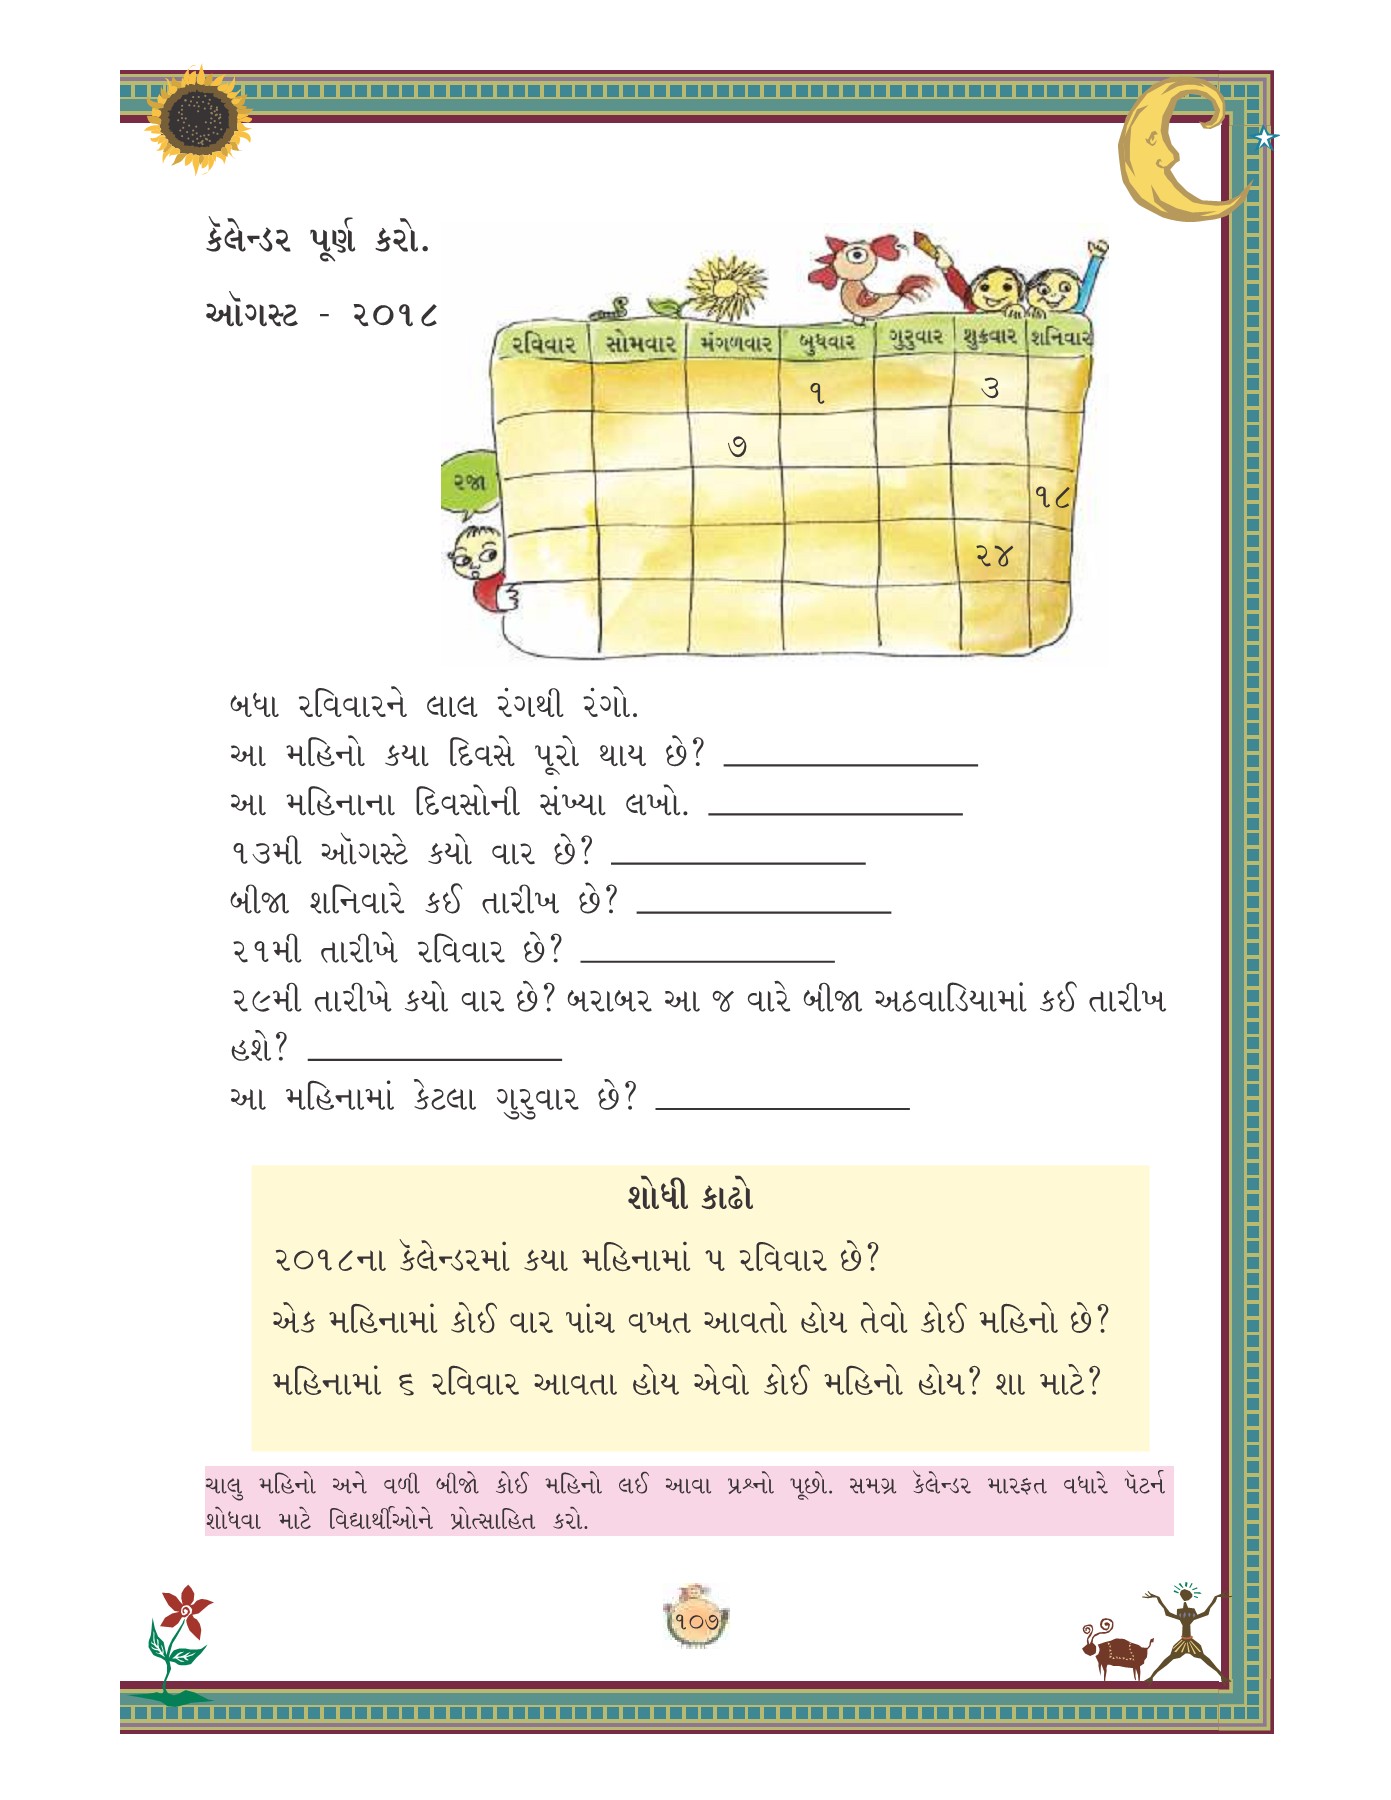 કૅલેન્ડર પૂર્ણ કરો.
ઑગસ્ટ - ૨૦૧૮
રવિવાર સોમવાર મંગળવાર બુધવાર ગુરુવાર શુક્રવાર શનિવાર
૧ ૩
૭
રજા
૧૮
૨૪
બધા રવિવારને લાલ રંગથી રંગો.
આ મહિનો કયા દિવસે પૂરો થાય છે?
આ મહિનાના દિવસોની સંખ્યા લખો.
૧૩મી ઑગસ્ટે કયો વાર છે?
બીજા શનિવારે કઈ તારીખ છે?
૨૧મી તારીખે રવિવાર છે?
૨૯મી તારીખે કયો વાર છે? બરાબર આ જ વારે બીજા અઠવાડિયામાં કઈ તારીખ
હશે?
આ મહિનામાં કેટલા ગુરુવાર છે?
શોધી કાઢો
૨૦૧૮ના કૅલેન્ડરમાં કયા મહિનામાં ૫ રવિવાર છે?
એક મહિનામાં કોઈ વાર પાંચ વખત આવતો હોય તેવો કોઈ મહિનો છે?
મહિનામાં ૬ રવિવાર આવતા હોય એવો કોઈ મહિનો હોય? શા માટે?
ચાલુ મહિનો અને વળી બીજો કોઈ મહિનો લઈ આવા પ્રશ્નો પૂછો. સમગ્ર કૅલેન્ડર મારફત વધારે પૅટર્ન
શોધવા માટે વિદ્યાર્થીઓને પ્રોત્સાહિત કરો.
૧૦૭